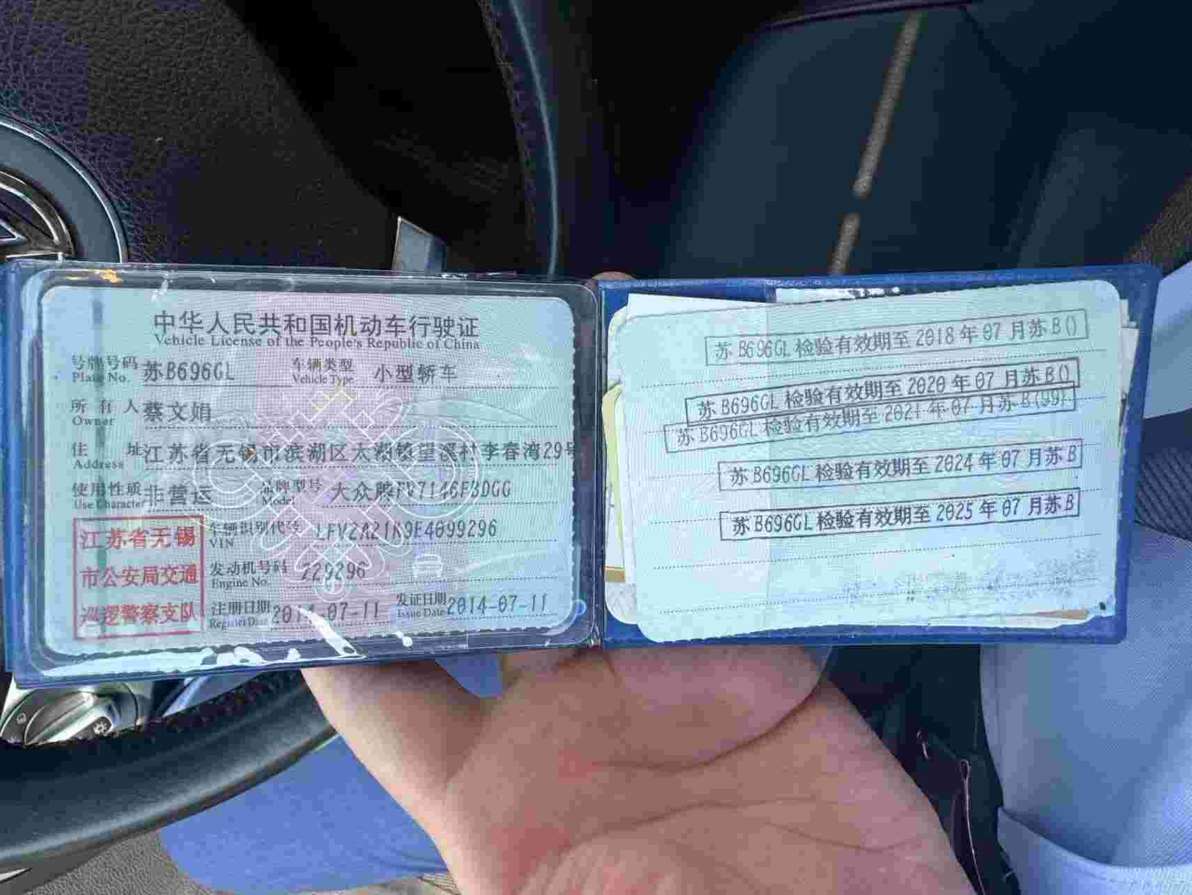 中华人民共和国机动车行驶证
Vehicle License of the People's Republic of China
号牌号码 苏B696GL 车辆类型 小型轿车
Plate No. Vehicle Type
所有人 蔡文娟
Owner
住址 江苏省无锡市滨湖区太湖镇望溪村李春湾29号
Address
使用性质 非营运 品牌型号 大众牌FV7146FBDGG
Use Character Model
江苏省无锡
市公安局交通
巡逻警察支队
车辆识别代号 LFV2A21K9E4099296
VIN
发动机号码 729296
Engine No.
注册日期 2014-07-11 发证日期 2014-07-11
Register Date Issue Date
苏B696GL检验有效期至2018年07月苏B()
苏B696GL检验有效期至2020年07月苏B()
苏B696GL检验有效期至2021年07月苏B(99)
苏B696GL检验有效期至2024年07月苏B
苏B696GL检验有效期至2025年07月苏B